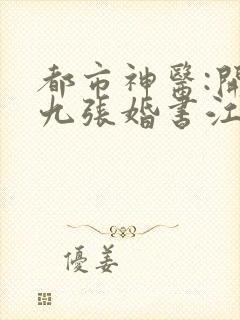 都市神醫:開
九張婚書江
優姜